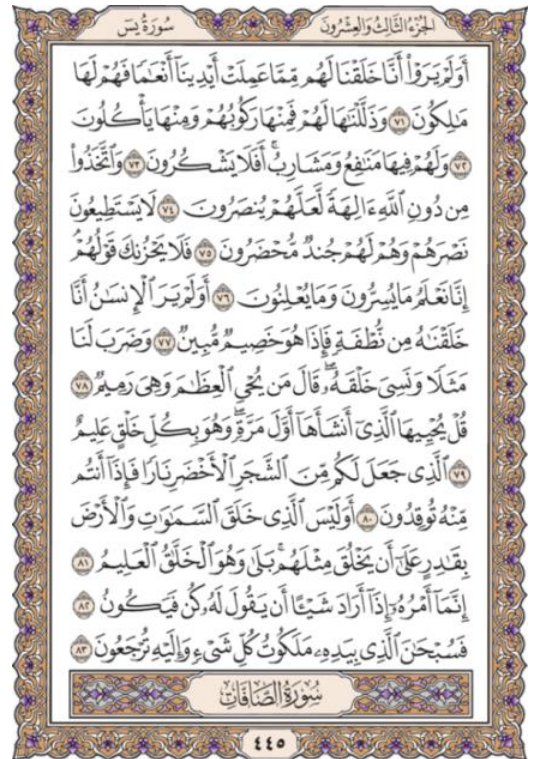 الجزء الثالث والعشرون
سورة يس
أَوَلَمْ يَرَوْا۟ أَنَّا خَلَقْنَا لَهُم مِّمَّا عَمِلَتْ أَيْدِينَآ أَنْعَـٰمًا فَهُمْ لَهَا
مَـٰلِكُونَ ٧١ وَذَلَّلْنَـٰهَا لَهُمْ فَمِنْهَا رَكُوبُهُمْ وَمِنْهَا يَأْكُلُونَ
٧٢ وَلَهُمْ فِيهَا مَنَـٰفِعُ وَمَشَارِبُ ۖ أَفَلَا يَشْكُرُونَ ٧٣ وَٱتَّخَذُوا۟
مِن دُونِ ٱللَّهِ ءَالِهَةً لَّعَلَّهُمْ يُنصَرُونَ ٧٤ لَا يَسْتَطِيعُونَ
نَصْرَهُمْ وَهُمْ لَهُمْ جُندٌ مُّحْضَرُونَ ٧٥ فَلَا يَحْزُنكَ قَوْلُهُمْ ۘ
إِنَّا نَعْلَمُ مَا يُسِرُّونَ وَمَا يُعْلِنُونَ ٧٦ أَوَلَمْ يَرَ ٱلْإِنسَـٰنُ أَنَّا
خَلَقْنَـٰهُ مِن نُّطْفَةٍ فَإِذَا هُوَ خَصِيمٌ مُّبِينٌ ٧٧ وَضَرَبَ لَنَا
مَثَلًا وَنَسِىَ خَلْقَهُۥ ۖ قَالَ مَن يُحْىِ ٱلْعِظَـٰمَ وَهِىَ رَمِيمٌ ٧٨
قُلْ يُحْيِيهَا ٱلَّذِىٓ أَنشَأَهَآ أَوَّلَ مَرَّةٍ ۖ وَهُوَ بِكُلِّ خَلْقٍ عَلِيمٌ
٧٩ ٱلَّذِى جَعَلَ لَكُم مِّنَ ٱلشَّجَرِ ٱلْأَخْضَرِ نَارًا فَإِذَآ أَنتُم
مِّنْهُ تُوقِدُونَ ٨٠ أَوَلَيْسَ ٱلَّذِى خَلَقَ ٱلسَّمَـٰوَٰتِ وَٱلْأَرْضَ
بِقَـٰدِرٍ عَلَىٰٓ أَن يَخْلُقَ مِثْلَهُم ۚ بَلَىٰ وَهُوَ ٱلْخَلَّـٰقُ ٱلْعَلِيمُ ٨١
إِنَّمَآ أَمْرُهُۥٓ إِذَآ أَرَادَ شَيْـًٔا أَن يَقُولَ لَهُۥ كُن فَيَكُونُ ٨٢
فَسُبْحَـٰنَ ٱلَّذِى بِيَدِهِۦ مَلَكُوتُ كُلِّ شَىْءٍ وَإِلَيْهِ تُرْجَعُونَ ٨٣
سُورَةُ الصَّافَّاتِ
٤٤٥